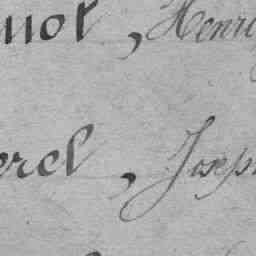 uot, Henri
erel, Joseph